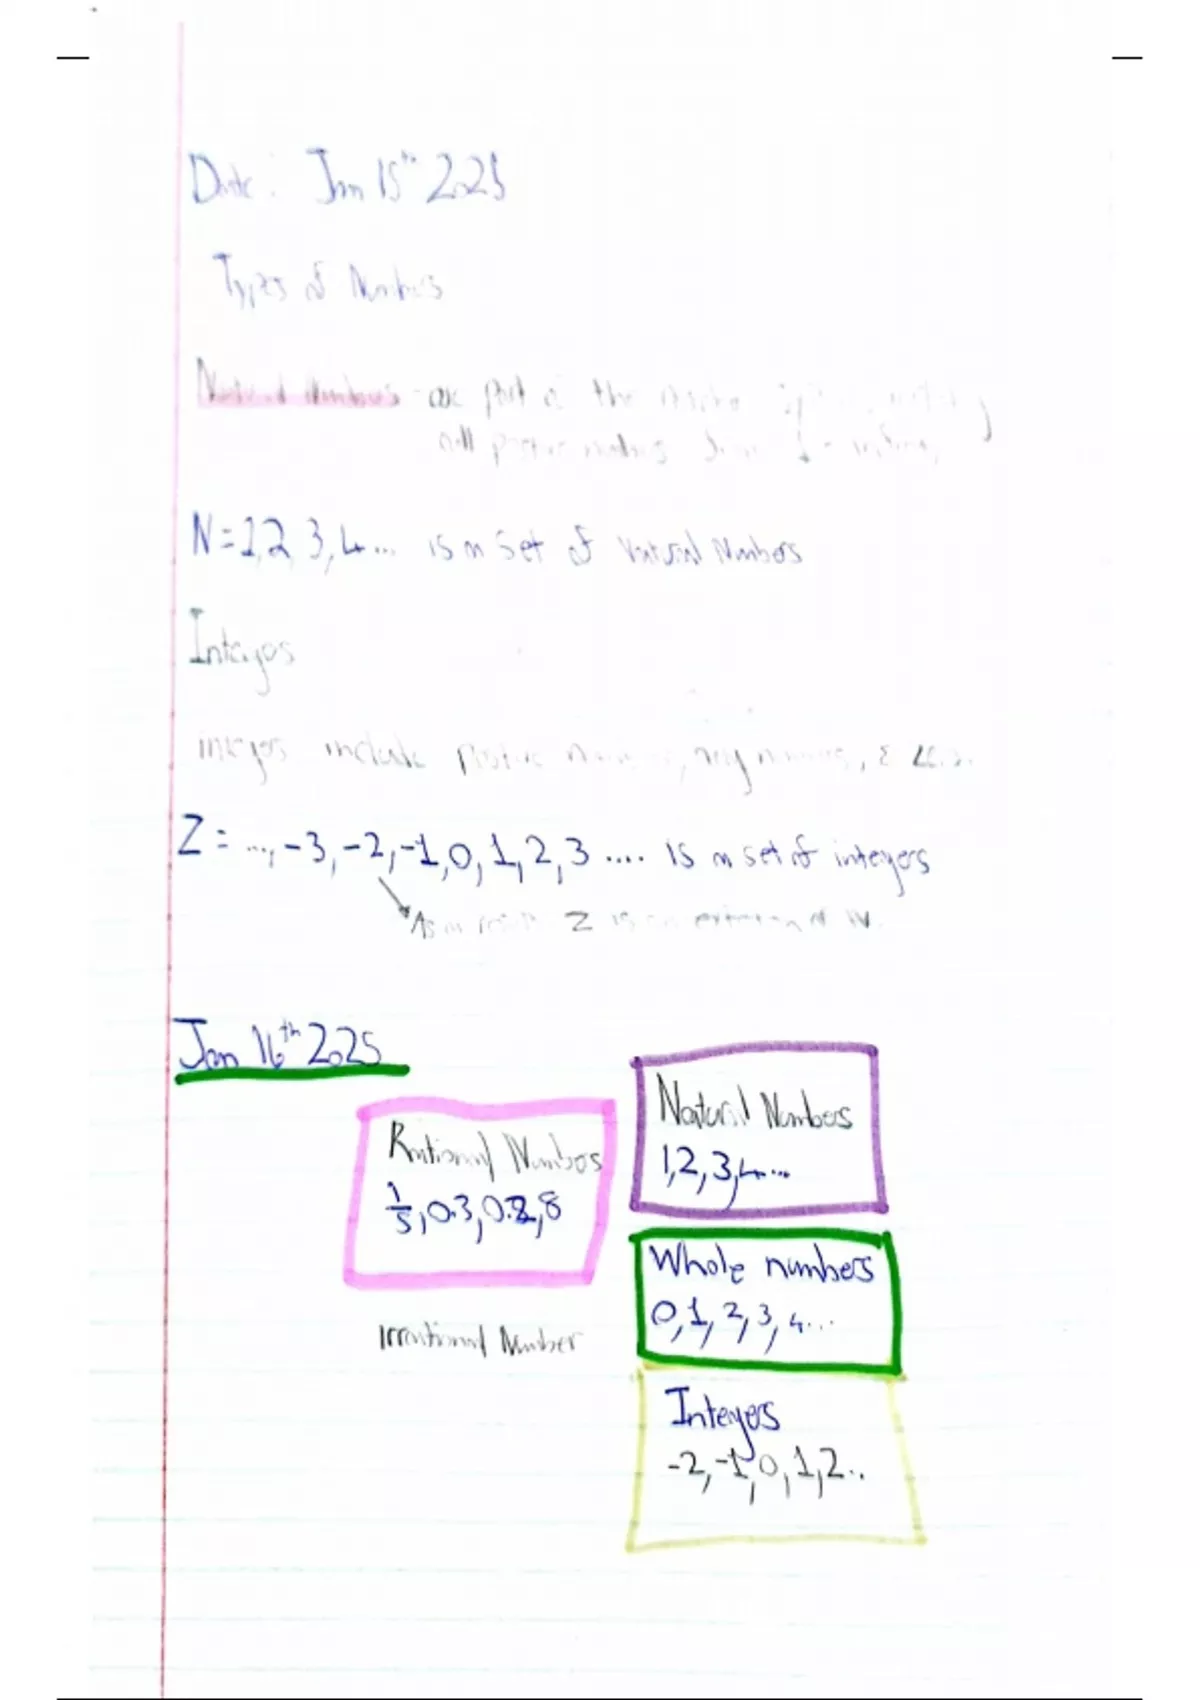 Date: Jan 15th 2025
Types of Numbers
Natural Numbers - are part of the
all positive numbers from 1 -
N=1,2 3,4... is a set of Natural Numbers
Integers
integers include positive numbers, neg numbers, &
Z = ..., -3, -2, -1, 0, 1, 2, 3 .... is a set of integers
As a result Z is an extension of N.
Jan 16th 2025
Rational Numbers
1/5, 0.3, 0.2, 8
Irrational Number
Natural Numbers
1,2,3,4...
Whole numbers
0, 1, 2, 3, 4...
Integers
-2, -1, 0, 1, 2..